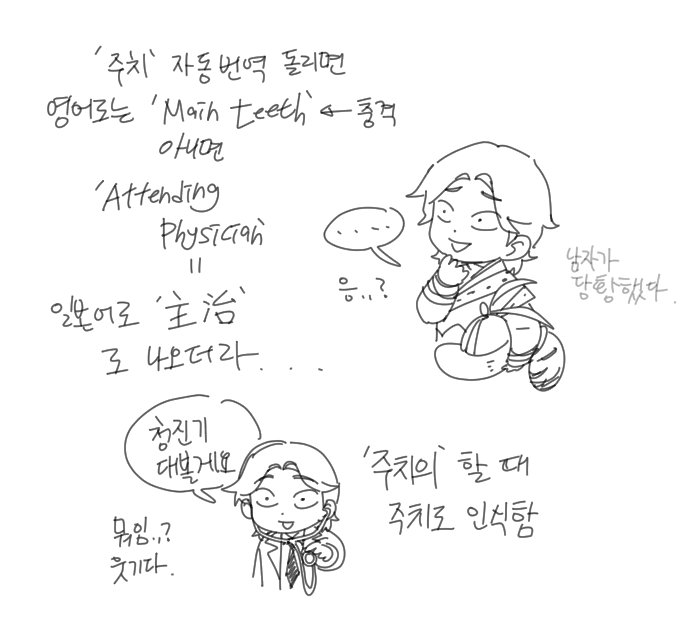 '주치' 자동번역 돌리면
영어로는 'Main teeth' ← 충격
아니면
'Attending
Physician'
=
일본어로 '主治'
로 나오더라. . . .
. . . .
응..?
남자가
당황했다.
청진기
대볼게요
'주치의' 할 때
주치로 인식함
뭐임..?
웃기다.